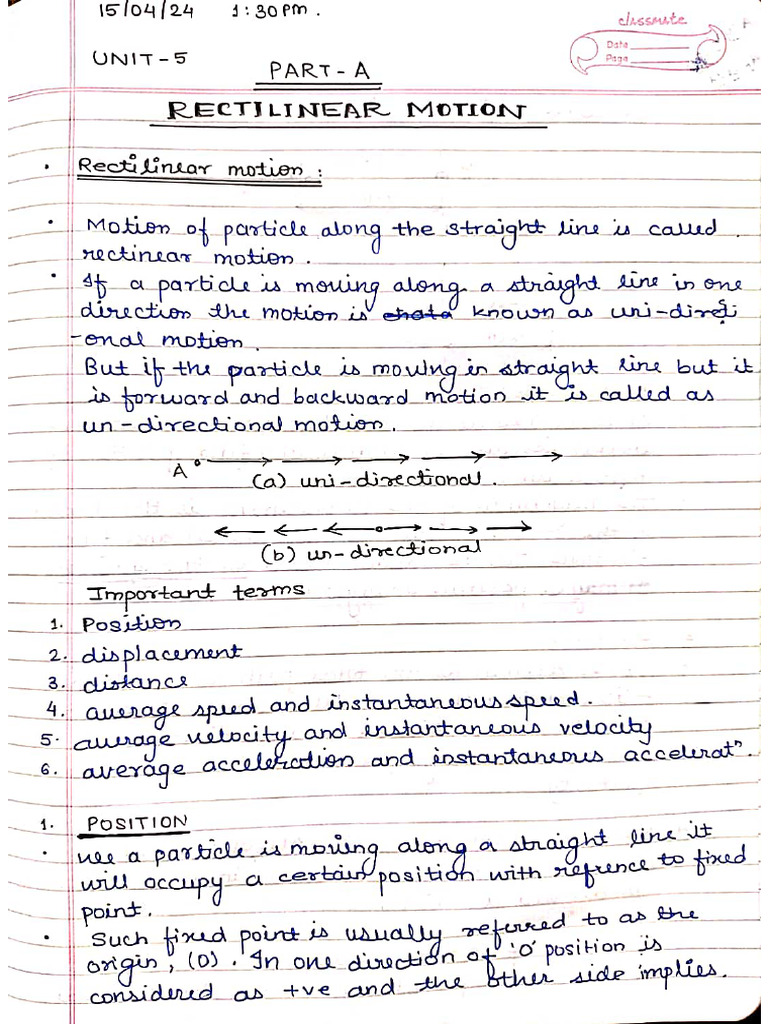 15/04/24 1:30pm.
classmate
Date
Page
UNIT-5
PART-A
RECTILINEAR MOTION
• Rectilinear motion :
• Motion of particle along the straight line is called
rectinear motion.
• If a particle is moving along a straight line in one
direction the motion is known as uni-directi
-onal motion.
But if the particle is moving in straight line but it
is forward and backward motion it is called as
un-directional motion.
A
(a) uni-directional.
(b) un-directional
Important terms
1. Position
2. displacement
3. distance
4. average speed and instantaneous speed.
5. average velocity and instantaneous velocity
6. average acceleration and instantaneous acceleratⁿ.
1. POSITION
• a particle is moving along a straight line it
will occupy a certain position with refrence to fixed
point.
• Such fixed point is usually referred to as the
origin, (O). In one direction of 'O' position is
considered as +ve and the other side implies.